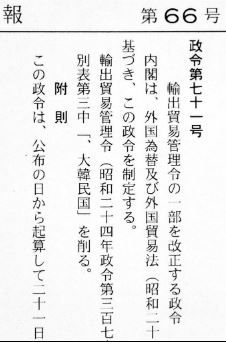 報　第66号
政令第七十一号
輸出貿易管理令の一部を改正する政令
内閣は、外国為替及び外国貿易法（昭和二十
基づき、この政令を制定する。
輸出貿易管理令（昭和二十四年政令第三百七
別表第三中「、大韓民国」を削る。
附　則
この政令は、公布の日から起算して二十一日